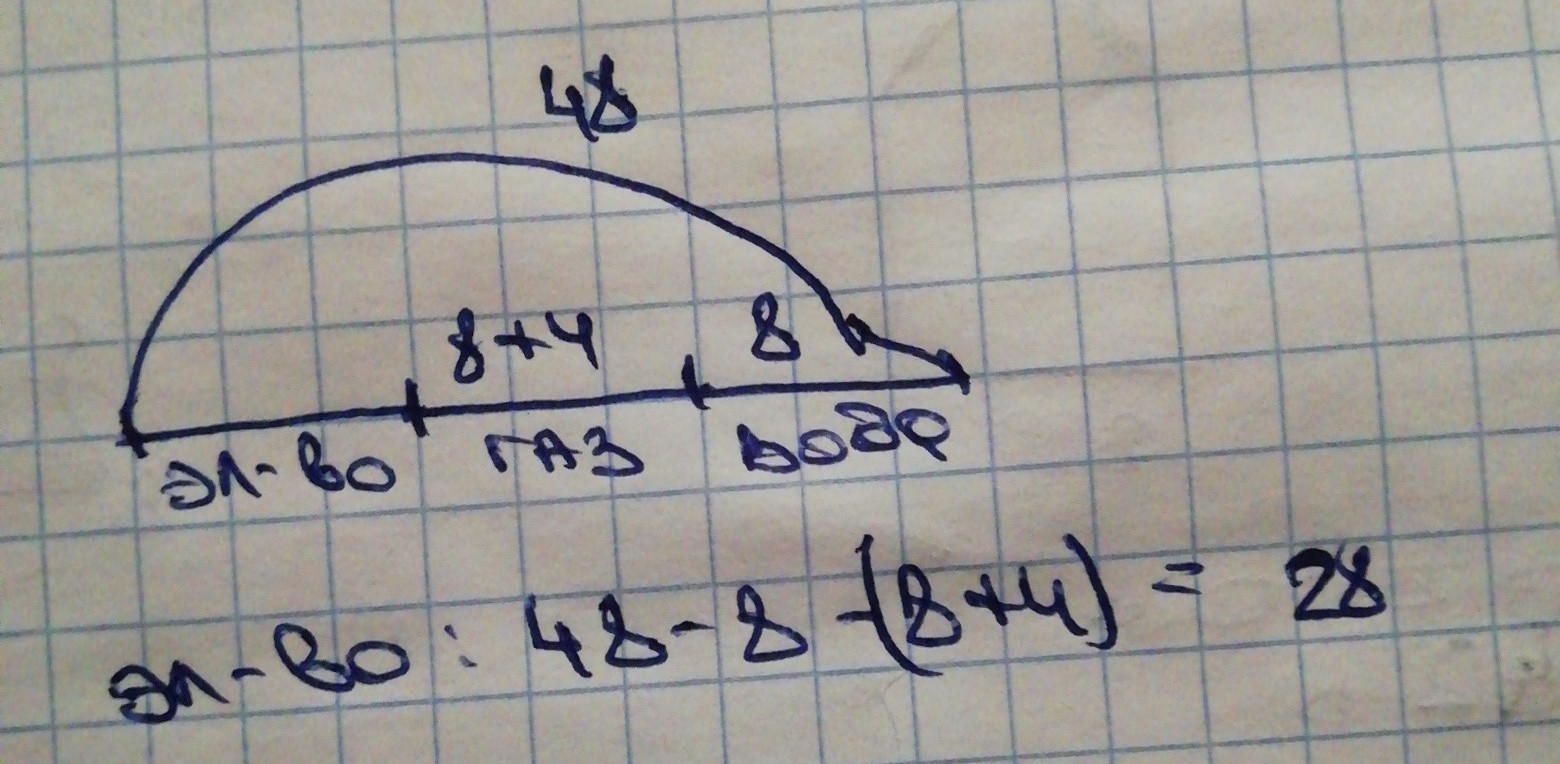 48
8+4 8
эл-во ГАЗ вода
эл-во: 48-8-(8+4) = 28